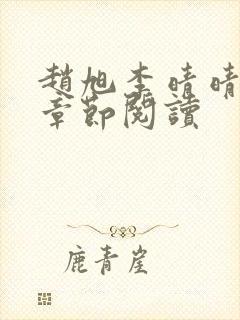 趙旭李晴晴
章節閱讀
鹿青崖